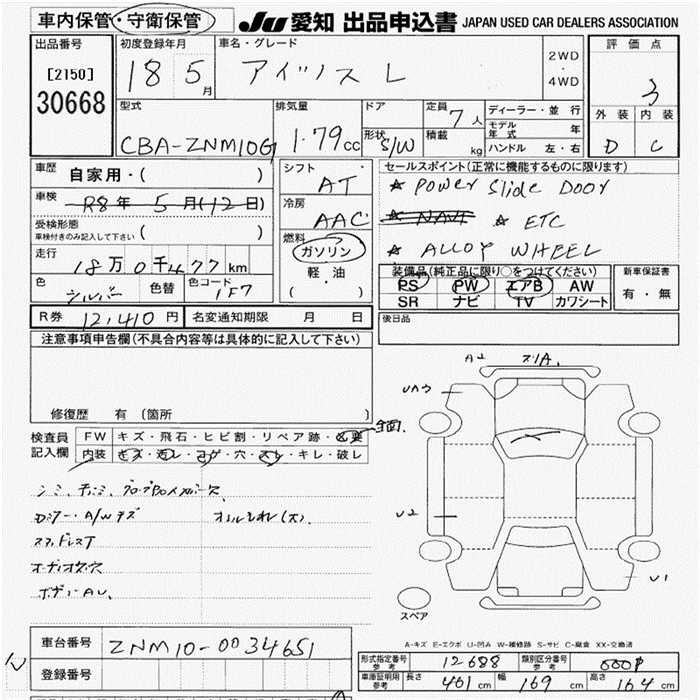 車内保管・守衛保管 JU 愛知 出品申込書 JAPAN USED CAR DEALERS ASSOCIATION
出品番号 初度登録年月 車名・グレード 評価点
[2150] 18 5月 アイシス L 2WD・4WD 3
30668 外装 内装
型式 排気量 ドア 定員 7人 ディーラー・並行 D C
CBA-ZNM10G 1.79cc 形状 S/W 積載 kg モデル年式 年
ハンドル 左・右
車歴 自家用・( ) シフト AT セールスポイント(正常に機能するものに限ります)
車検 R8年 5月(12日) 冷房 AAC ★ Power Slide Door
受検形態 ★ NAVI ★ ETC
車検付きのみ記入して下さい( ) 燃料 ★ ALLOY WHEEL
走行 18万0千477km ガソリン 装備品(純正品に限り○をつけてください) 新車保証書
色 シルバー 色替 色コード 1F7 軽油 PS PW エアB AW 有・無
( ) SR ナビ TV カワシート
R券 12,410円 名変通知期限 月 日 後日品
注意事項申告欄(不具合内容等は具体的に記入して下さい)
A2
UA3
修復歴 有(箇所 )
検査員記入欄 FW キズ・飛石・ヒビ割・リペア跡・必要
内装 キズ・汚レ・コゲ・穴・スレ・キレ・破レ
U2
オーディオ欠穴
U1
スペア
A-キズ E-エクボ U-凹み W-補修跡 S-サビ C-腐食 XX-交換済
車台番号 ZNM10-0034651
登録番号
形式指定番号 参考 12688 類別区分番号 参考
車庫証明用 参考 長さ 461cm 幅 169cm 高さ 164cm